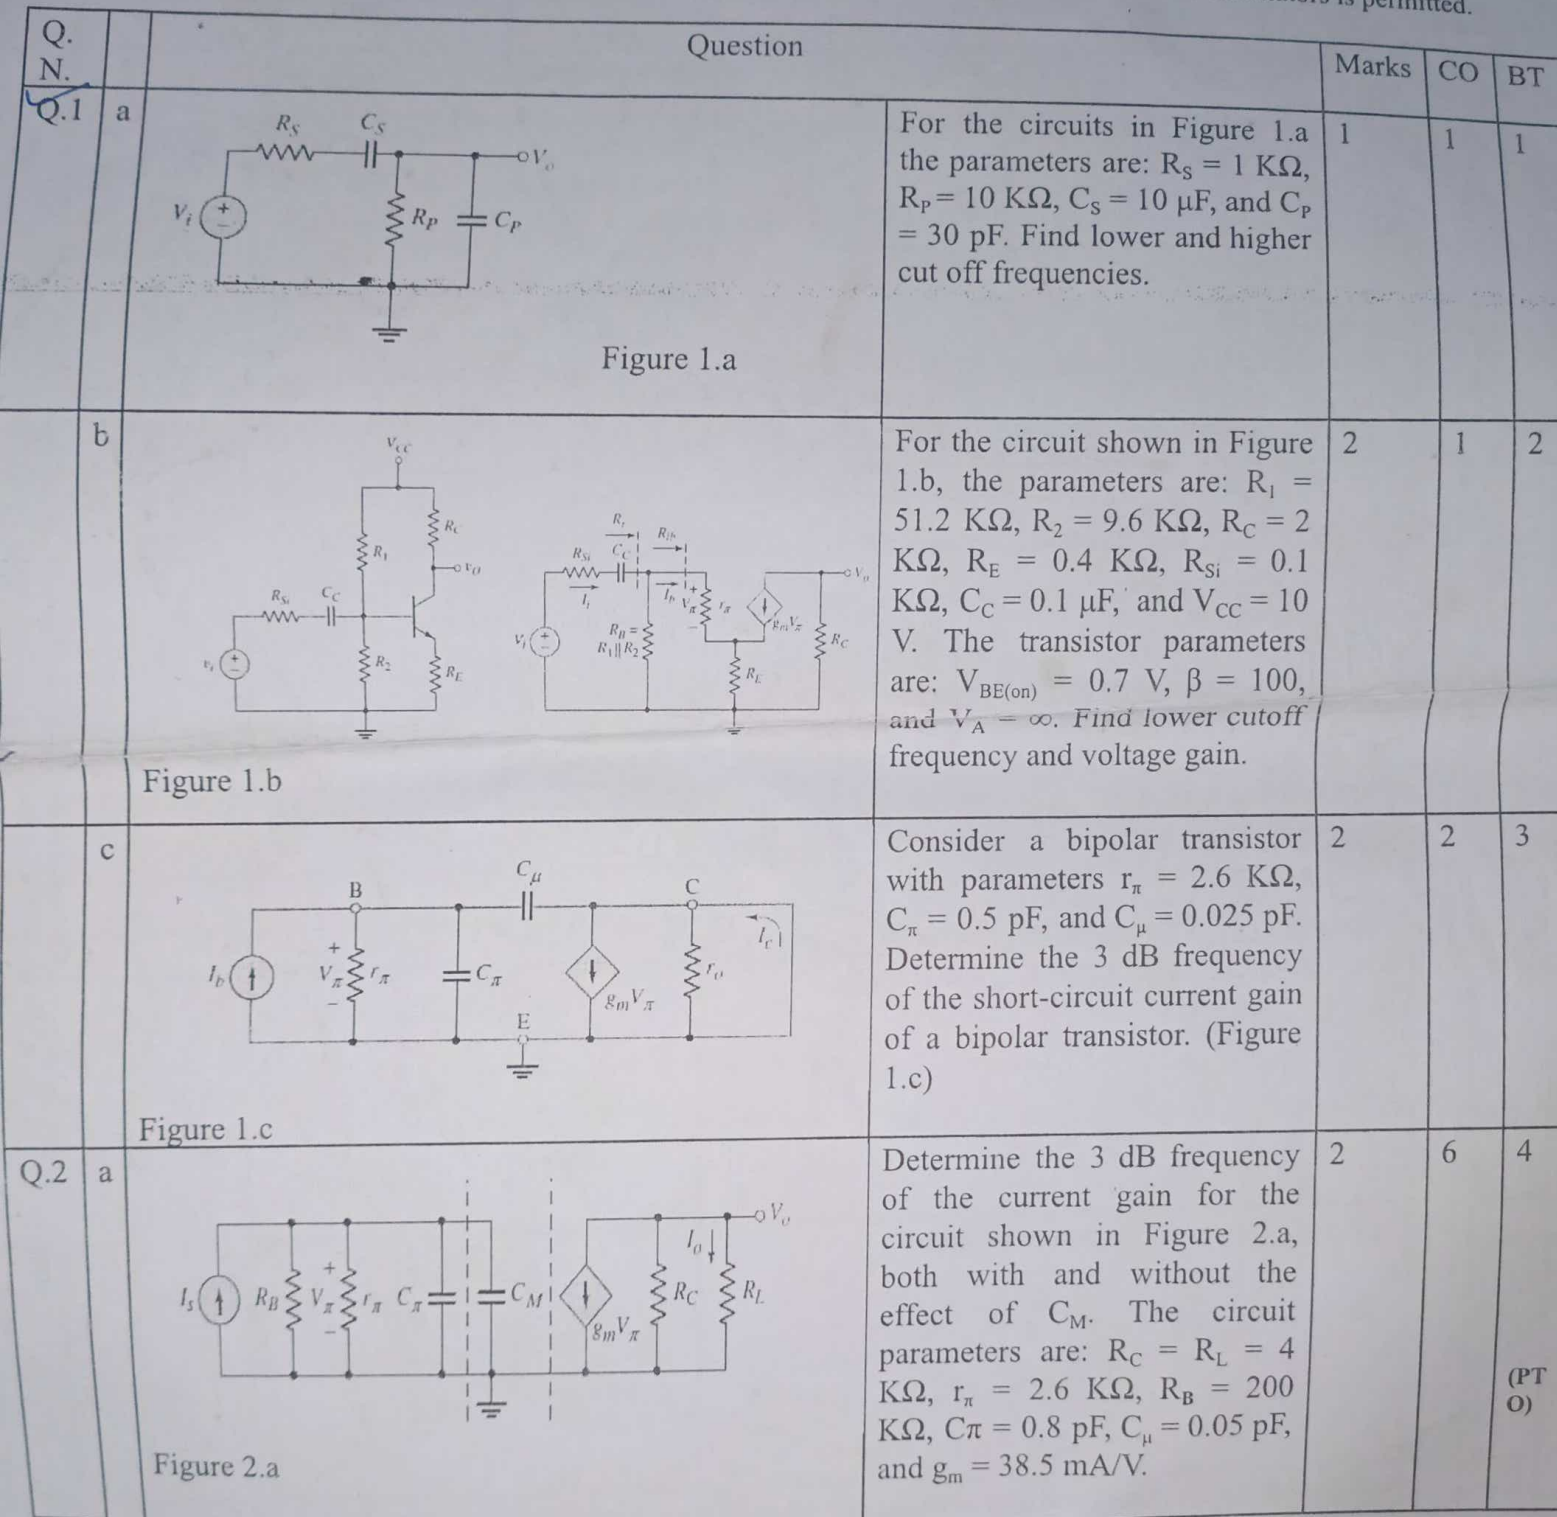 is permitted.
Q.
N.
Question
Marks
CO
BT
Q.1
a
R_S
C_S
V_o
V_i
R_P
C_P
Figure 1.a
For the circuits in Figure 1.a
the parameters are: R_S = 1 KΩ,
R_P = 10 KΩ, C_S = 10 μF, and C_P
= 30 pF. Find lower and higher
cut off frequencies.
1
1
1
b
V_CC
R_C
R_1
v_O
R_Si
C_C
R_2
R_E
v_i
R_i
R_ib
R_Si
C_C
I_i
I_b
V_π
r_π
g_mV_π
V_o
V_i
R_B =
R_1||R_2
R_E
R_C
Figure 1.b
For the circuit shown in Figure
1.b, the parameters are: R_1 =
51.2 KΩ, R_2 = 9.6 KΩ, R_C = 2
KΩ, R_E = 0.4 KΩ, R_Si = 0.1
KΩ, C_C = 0.1 μF, and V_CC = 10
V. The transistor parameters
are: V_BE(on) = 0.7 V, β = 100,
and V_A = ∞. Find lower cutoff
frequency and voltage gain.
2
1
2
c
C_μ
B
C
I_b
V_π
r_π
C_π
g_mV_π
r_o
I_c
E
Figure 1.c
Consider a bipolar transistor
with parameters r_π = 2.6 KΩ,
C_π = 0.5 pF, and C_μ = 0.025 pF.
Determine the 3 dB frequency
of the short-circuit current gain
of a bipolar transistor. (Figure
1.c)
2
2
3
Q.2
a
V_o
I_o
I_s
R_B
V_π
r_π
C_π
C_M
g_mV_π
R_C
R_L
Figure 2.a
Determine the 3 dB frequency
of the current gain for the
circuit shown in Figure 2.a,
both with and without the
effect of C_M. The circuit
parameters are: R_C = R_L = 4
KΩ, r_π = 2.6 KΩ, R_B = 200
KΩ, Cπ = 0.8 pF, C_μ = 0.05 pF,
and g_m = 38.5 mA/V.
2
6
4
(PT
O)